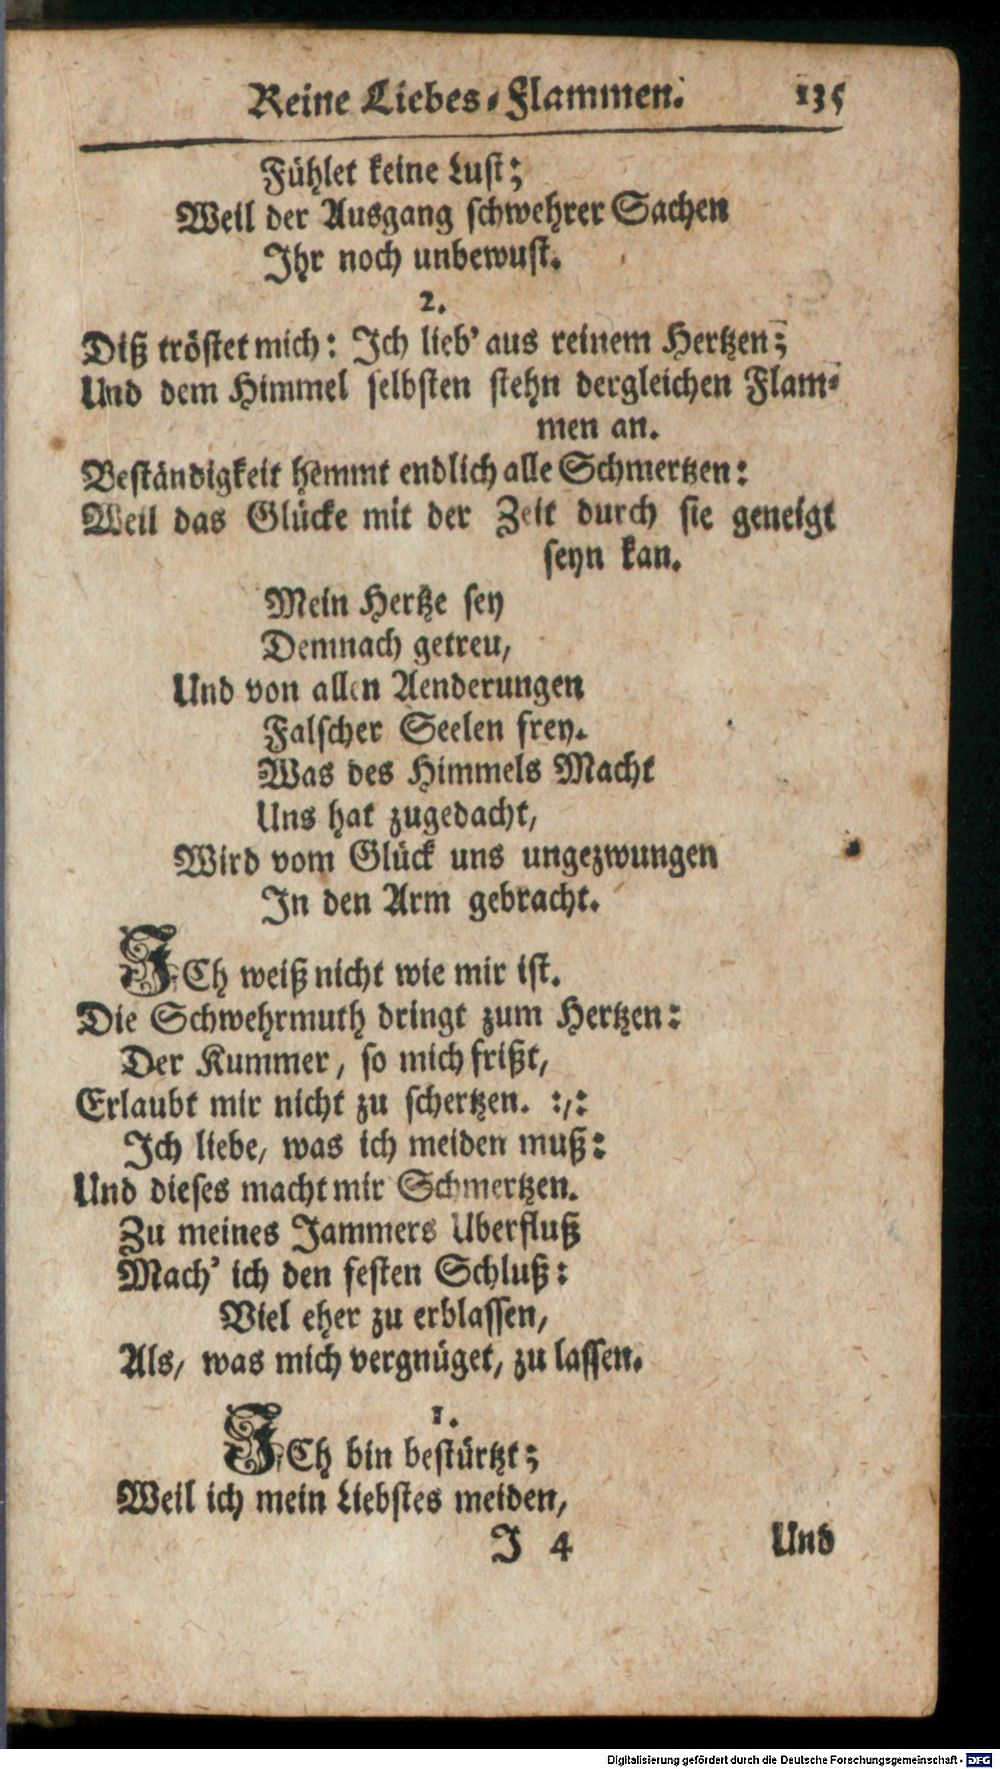 Reine Liebes-Flammen. 135
Fühlet keine Lust;
Weil der Ausgang schwehrer Sachen
Ihr noch unbewust.
2.
Diß tröstet mich: Ich lieb' aus reinem Hertzen;
Und dem Himmel selbsten stehn dergleichen Flam-
men an.
Beständigkeit hemmt endlich alle Schmertzen:
Weil das Glücke mit der Zeit durch sie geneigt
seyn kan.
Mein Hertze sey
Demnach getreu,
Und von allen Aenderungen
Falscher Seelen frey.
Was des Himmels Macht
Uns hat zugedacht,
Wird vom Glück uns ungezwungen
In den Arm gebracht.
ICh weiß nicht wie mir ist.
Die Schwehrmuth dringt zum Hertzen:
Der Kummer, so mich frißt,
Erlaubt mir nicht zu schertzen. :/:
Ich liebe, was ich meiden muß:
Und dieses macht mir Schmertzen.
Zu meines Jammers Uberfluß
Mach' ich den festen Schluß:
Viel eher zu erblassen,
Als, was mich vergnüget, zu lassen.
1.
ICh bin bestürtzt;
Weil ich mein Liebstes meiden,
I 4 Und
Digitalisierung gefördert durch die Deutsche Forschungsgemeinschaft - DFG